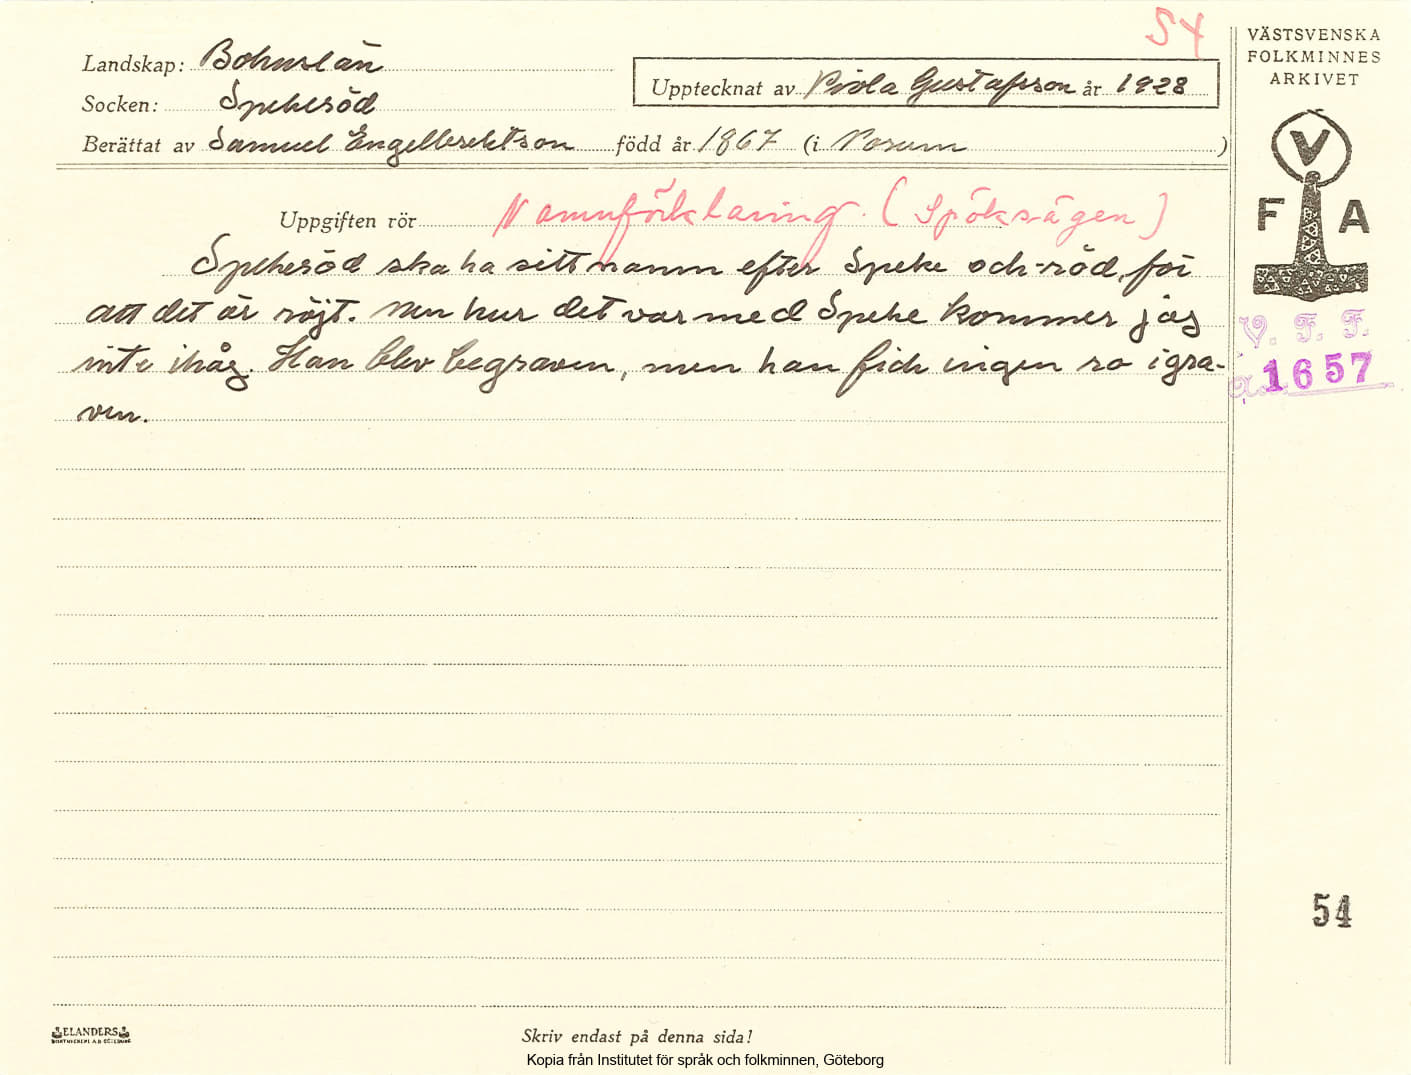 54
Landskap: Bohuslän
Socken: Spekeröd
Upptecknat av Viola Gustafsson år 1928
Berättat av Samuel Engelbrektson född år 1867 (i Norum )
Uppgiften rör Namnförklaring. (Spöksägen)
Spekeröd ska ha sitt namn efter Speke och -röd, för
att det är röjt. Men hur det var med Speke kommer jag
inte ihåg. Han blev begraven, men han fick ingen ro i gra-
ven.
VÄSTSVENSKA
FOLKMINNES
ARKIVET
V
F A
V. F. F.
1657
54
ELANDERS
Skriv endast på denna sida!
Kopia från Institutet för språk och folkminnen, Göteborg